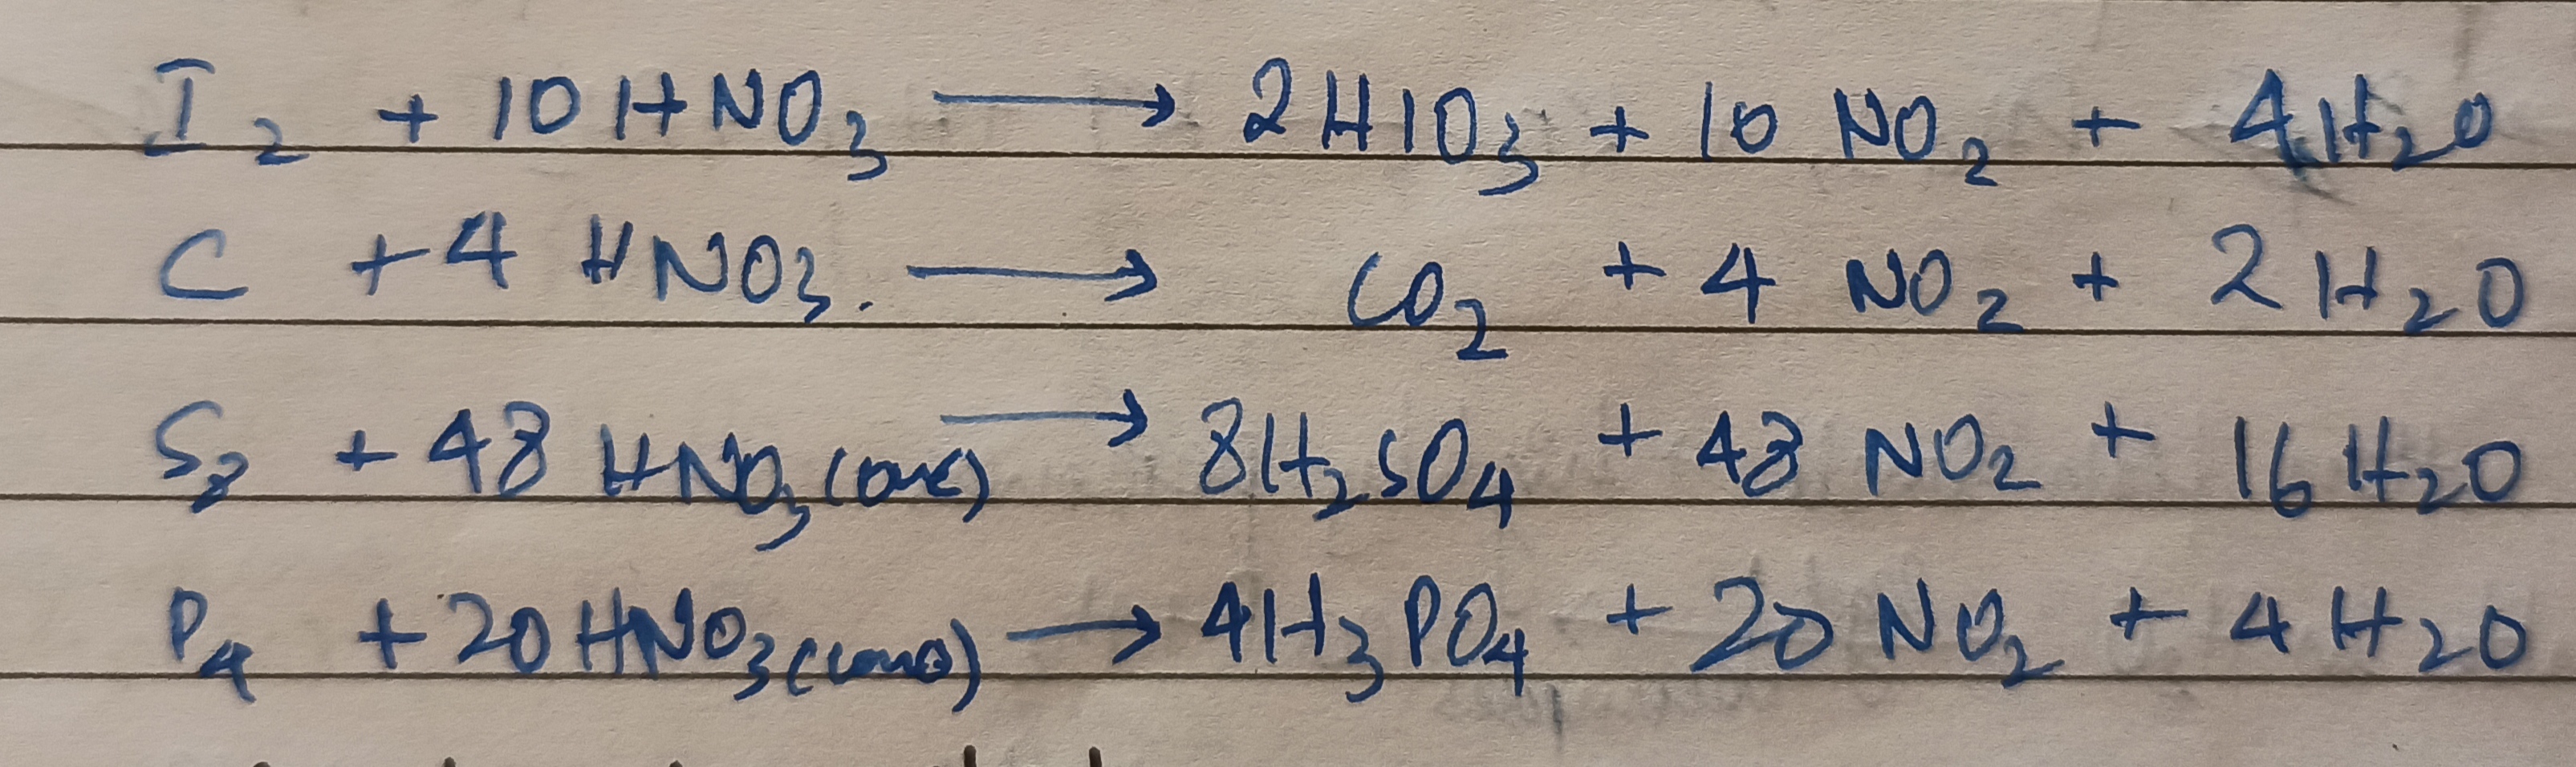 I₂ + 10 HNO₃ ⟶ 2HIO₃ + 10 NO₂ + 4H₂O
C + 4 HNO₃. ⟶ CO₂ + 4 NO₂ + 2 H₂O
S₈ + 48 HNO₃ ⟶ 8H₂SO₄ + 48 NO₂ + 16 H₂O
P₄ + 20 HNO₃ (conc) ⟶ 4H₃PO₄ + 20 NO₂ + 4 H₂O